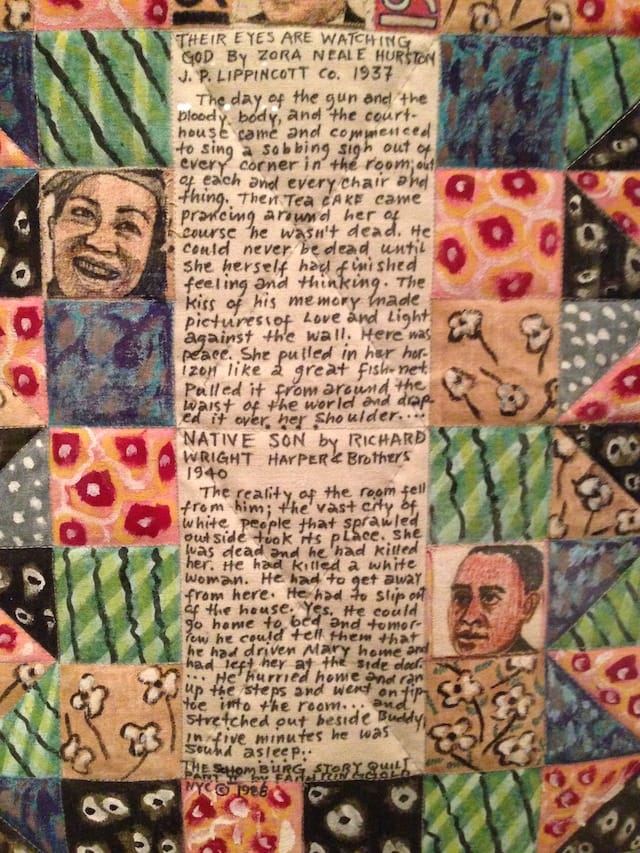 THEIR EYES ARE WATCHING
GOD By ZORA NEALE HURSTON
J. P. LIPPINCOTT Co. 1937
The day of the gun and the
bloody body, and the court-
house came and commenced
to sing a sobbing sigh out of
every corner in the room; out
of each and every chair and
thing. Then Tea CAKE came
prancing around her of
course he wasn't dead. He
could never be dead until
she herself had finished
feeling and thinking. The
kiss of his memory made
pictures of Love and Light
against the wall. Here was
peace. She pulled in her hor-
izon like a great fish-net
Pulled it from around the
waist of the world and drap-
ed it over her Shoulder....
NATIVE SON by RICHARD
WRIGHT HARPER & Brothers
1940
The reality of the room fell
from him; the vast city of
white people that sprawled
outside took its place. She
was dead and he had killed
her. He had killed a white
woman. He had to get away
from here. He had to slip out
of the house. Yes. He could
go home to bed and tomor-
row he could tell them that
he had driven Mary home and
had left her at the side door.
... He hurried home and ran
up the steps and went on tip-
toe into the room.... and
stretched out beside Buddy,
in five minutes he was
sound asleep..
THE SCHOMBURG STORY QUILT
PART II by FAITH RINGGOLD
NYC © 1986